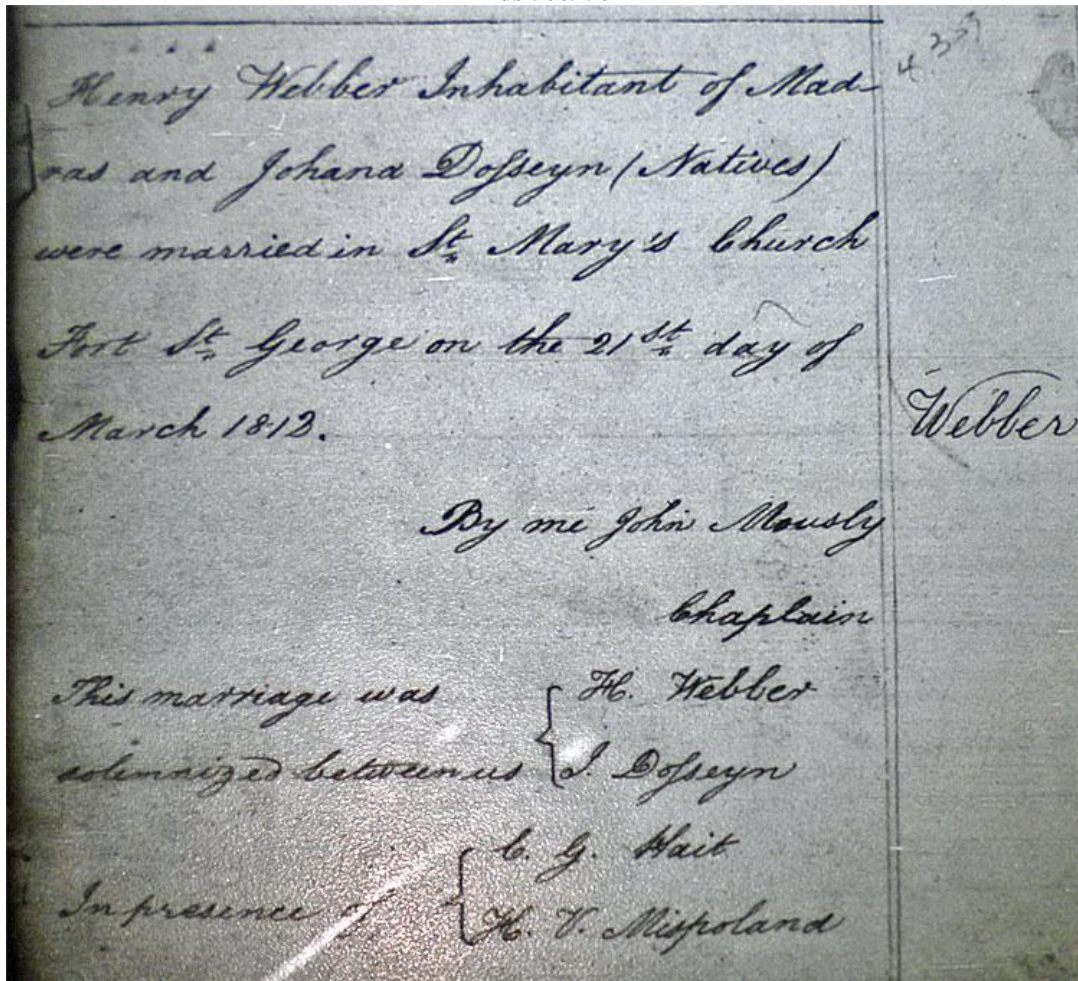 Henry Webber Inhabitant of Mad-
ras and Johana Doſseyn (Natives)
were married in St. Mary's Church
Fort St. George on the 21st. day of
March 1812.
Webber
By me John Mously
Chaplain
This marriage was
solemnized between us
H. Webber
J. Doſseyn
In presence of
C. G. Hait
H. V. Mispoland